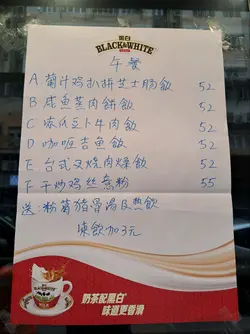 黑白
BLACK&WHITE
午餐
A 葡汁鸡扒拼芝士肠飯 52
B 咸鱼蒸肉餅飯 52
C 凉瓜豆卜牛肉飯 52
D 咖喱吉魚飯 52
E 台式叉烧肉燥飯 52
F 干炒鸡丝米粉 55
送：粉葛猪骨湯及热飲
凍飲加3元
奶茶配黑白®
味道更香滑